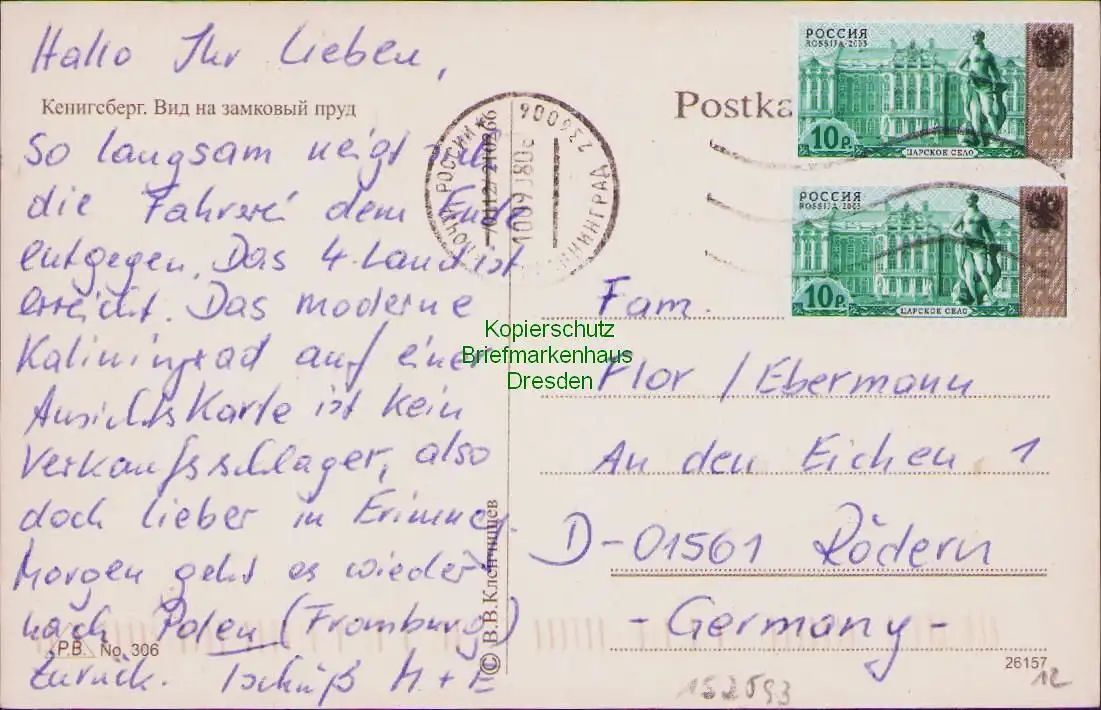 Hallo Ihr Lieben,
Кенигсберг. Вид на замковый пруд
So langsam neigt sich
die Fahrerei dem Ende
entgegen. Das 4. Land ist
erreicht. Das moderne
Kaliningrad auf einer
Ansichtskarte ist kein
Verkaufsschlager, also
doch lieber in Erinner.
Morgen geht es wieder
nach Polen (Fromburg)
zurück. Tschüß M + E
P.B. No. 306
© В.В.Клочищев
Postka
РОССИЯ
ROSSIJA 2003
10 р.
ЦАРСКОЕ СЕЛО
РОССИЯ
ROSSIJA 2003
10 р.
ЦАРСКОЕ СЕЛО
ПОЧТА РОССИИ
236006
Kopierschutz
Briefmarkenhaus
Dresden
Fam.
Flor / Ebermann
An den Eichen 1
D-01561 Rödern
- Germany -
26157
12
152593